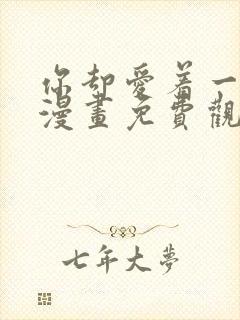 你却愛着一
漫畫免費觀
七年大夢